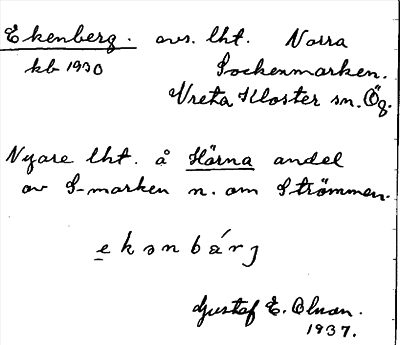 Ekenberg. avs. lht. Norra
kb 1930 Sockenmarken.
Vreta Kloster sn. Ög.
Nyare lht. å Hårna andel
av S-marken n. om Strömmen.
ekənbárj
Gustaf E. Olsson.
1937.